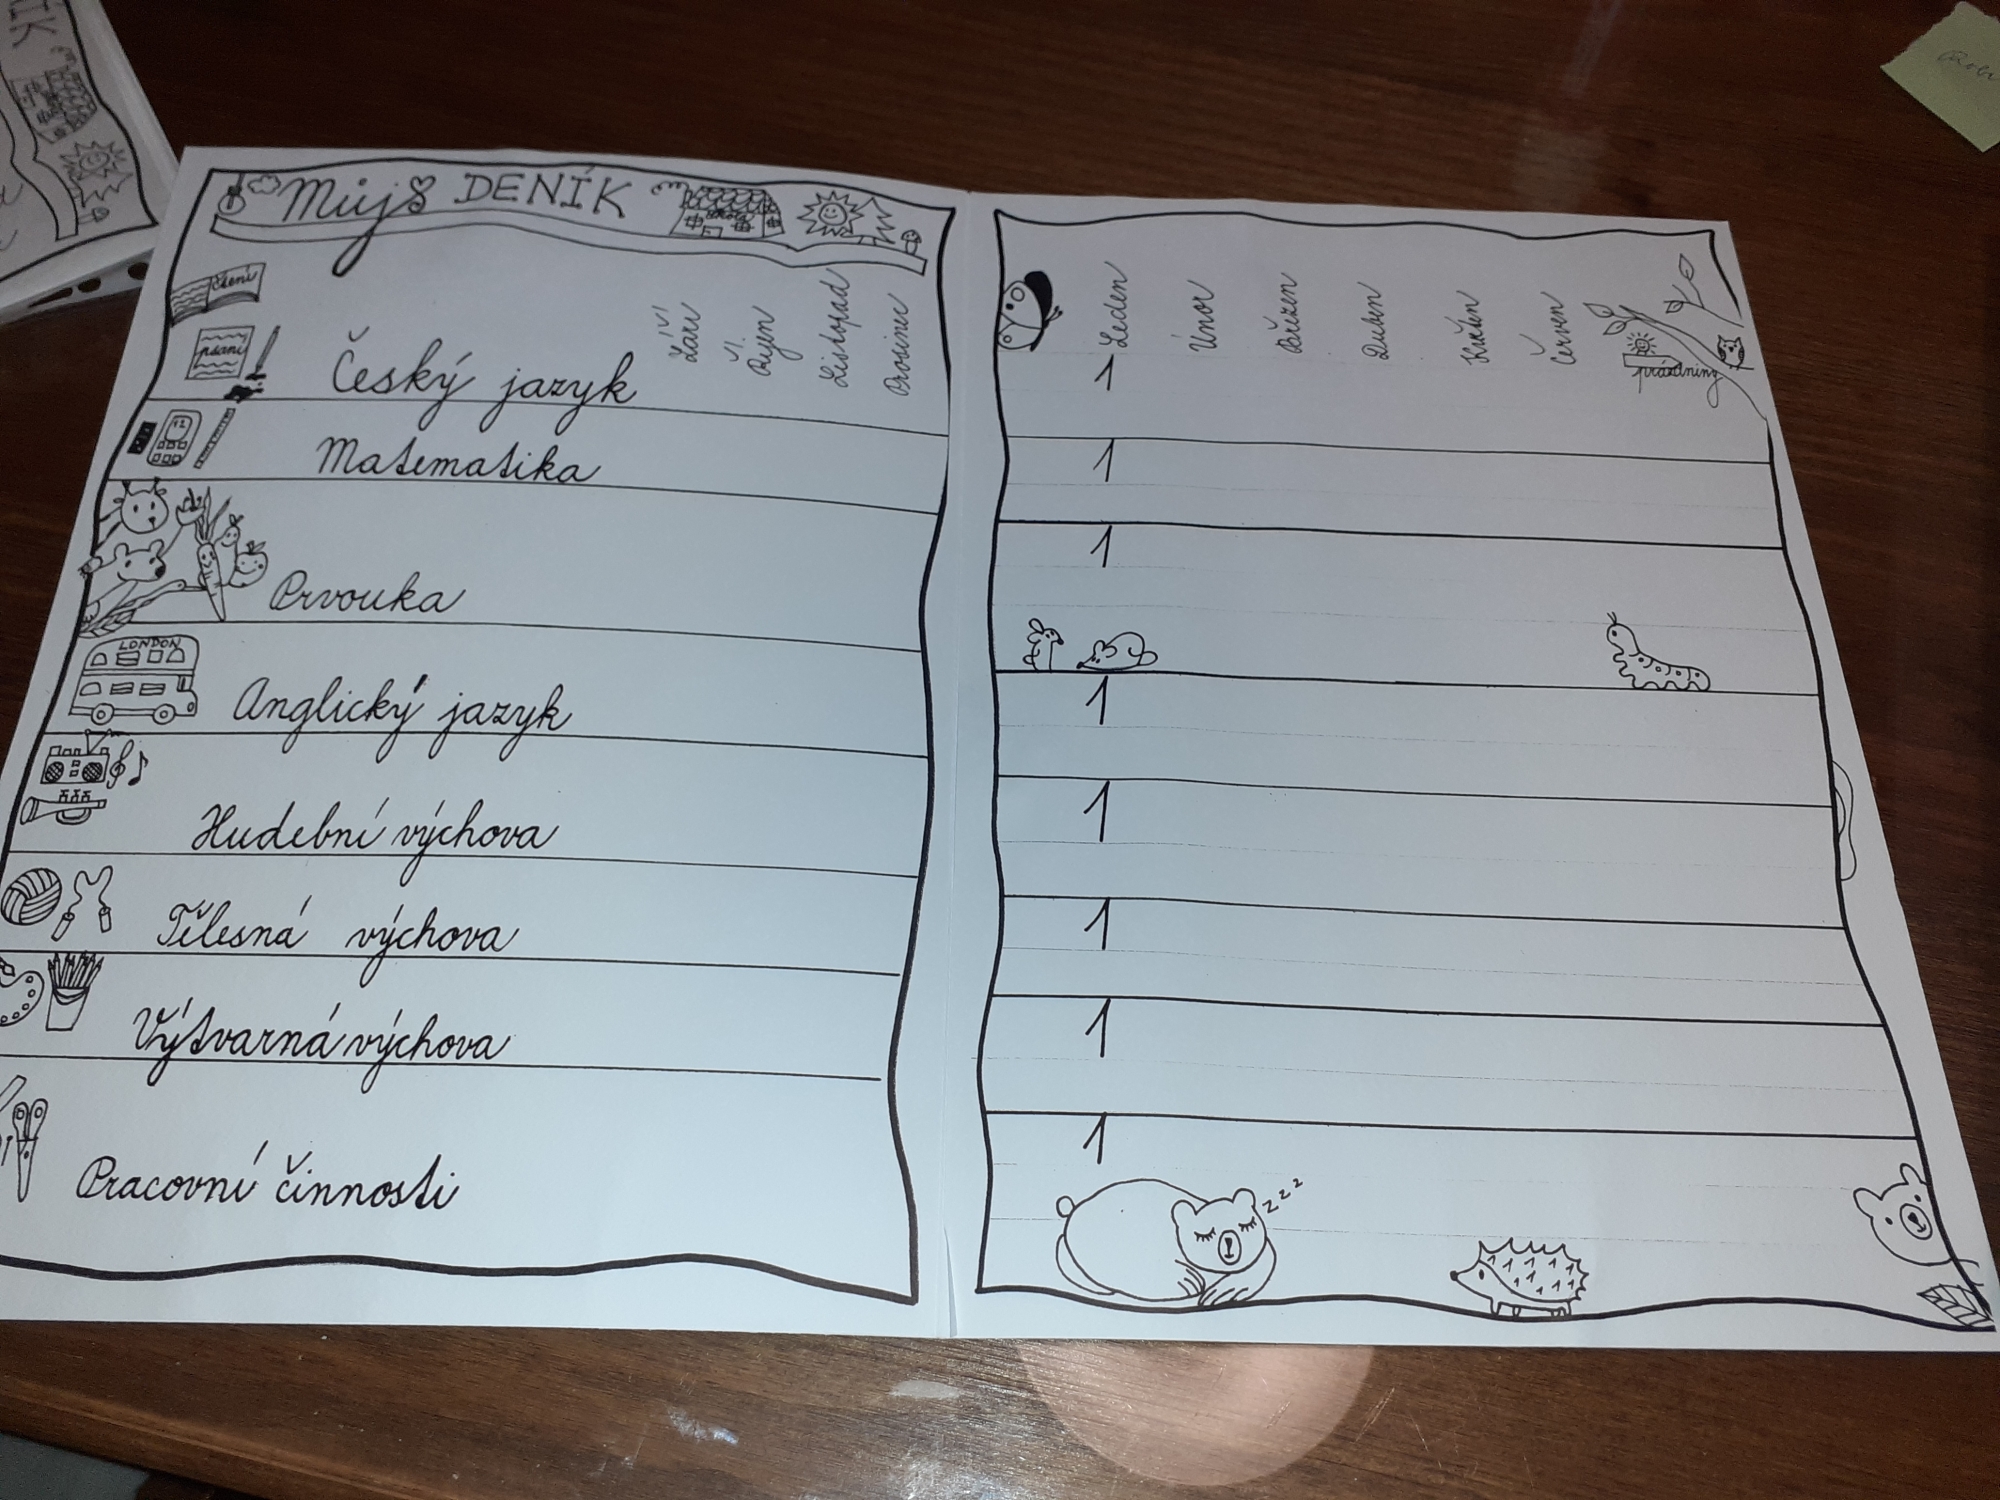 Můj DENÍK
škola
čtení
psaní
Září
Říjen
Listopad
Prosinec
Leden
Únor
Březen
Duben
Květen
Červen
prázdniny
Český jazyk
1
Matematika
1
Prvouka
1
LONDON
Anglický jazyk
1
Hudební výchova
1
Tělesná výchova
1
Výtvarná výchova
1
Pracovní činnosti
1
z z z z